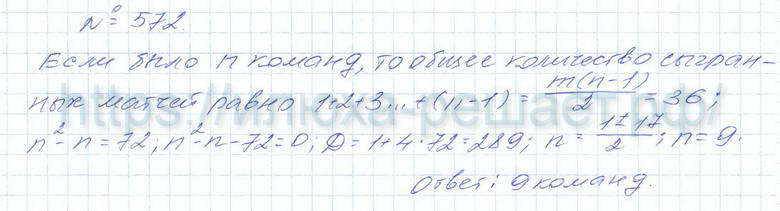 № 572.
Если было n команд, то общее количество сыгран-
ных матчей равно 1+2+3...+(n-1) = m(n-1)/2 = 36;
n²-n=72; n²-n-72=0; D=1+4·72=289; n= 17 17/2; n=9.
Ответ: 9 команд.